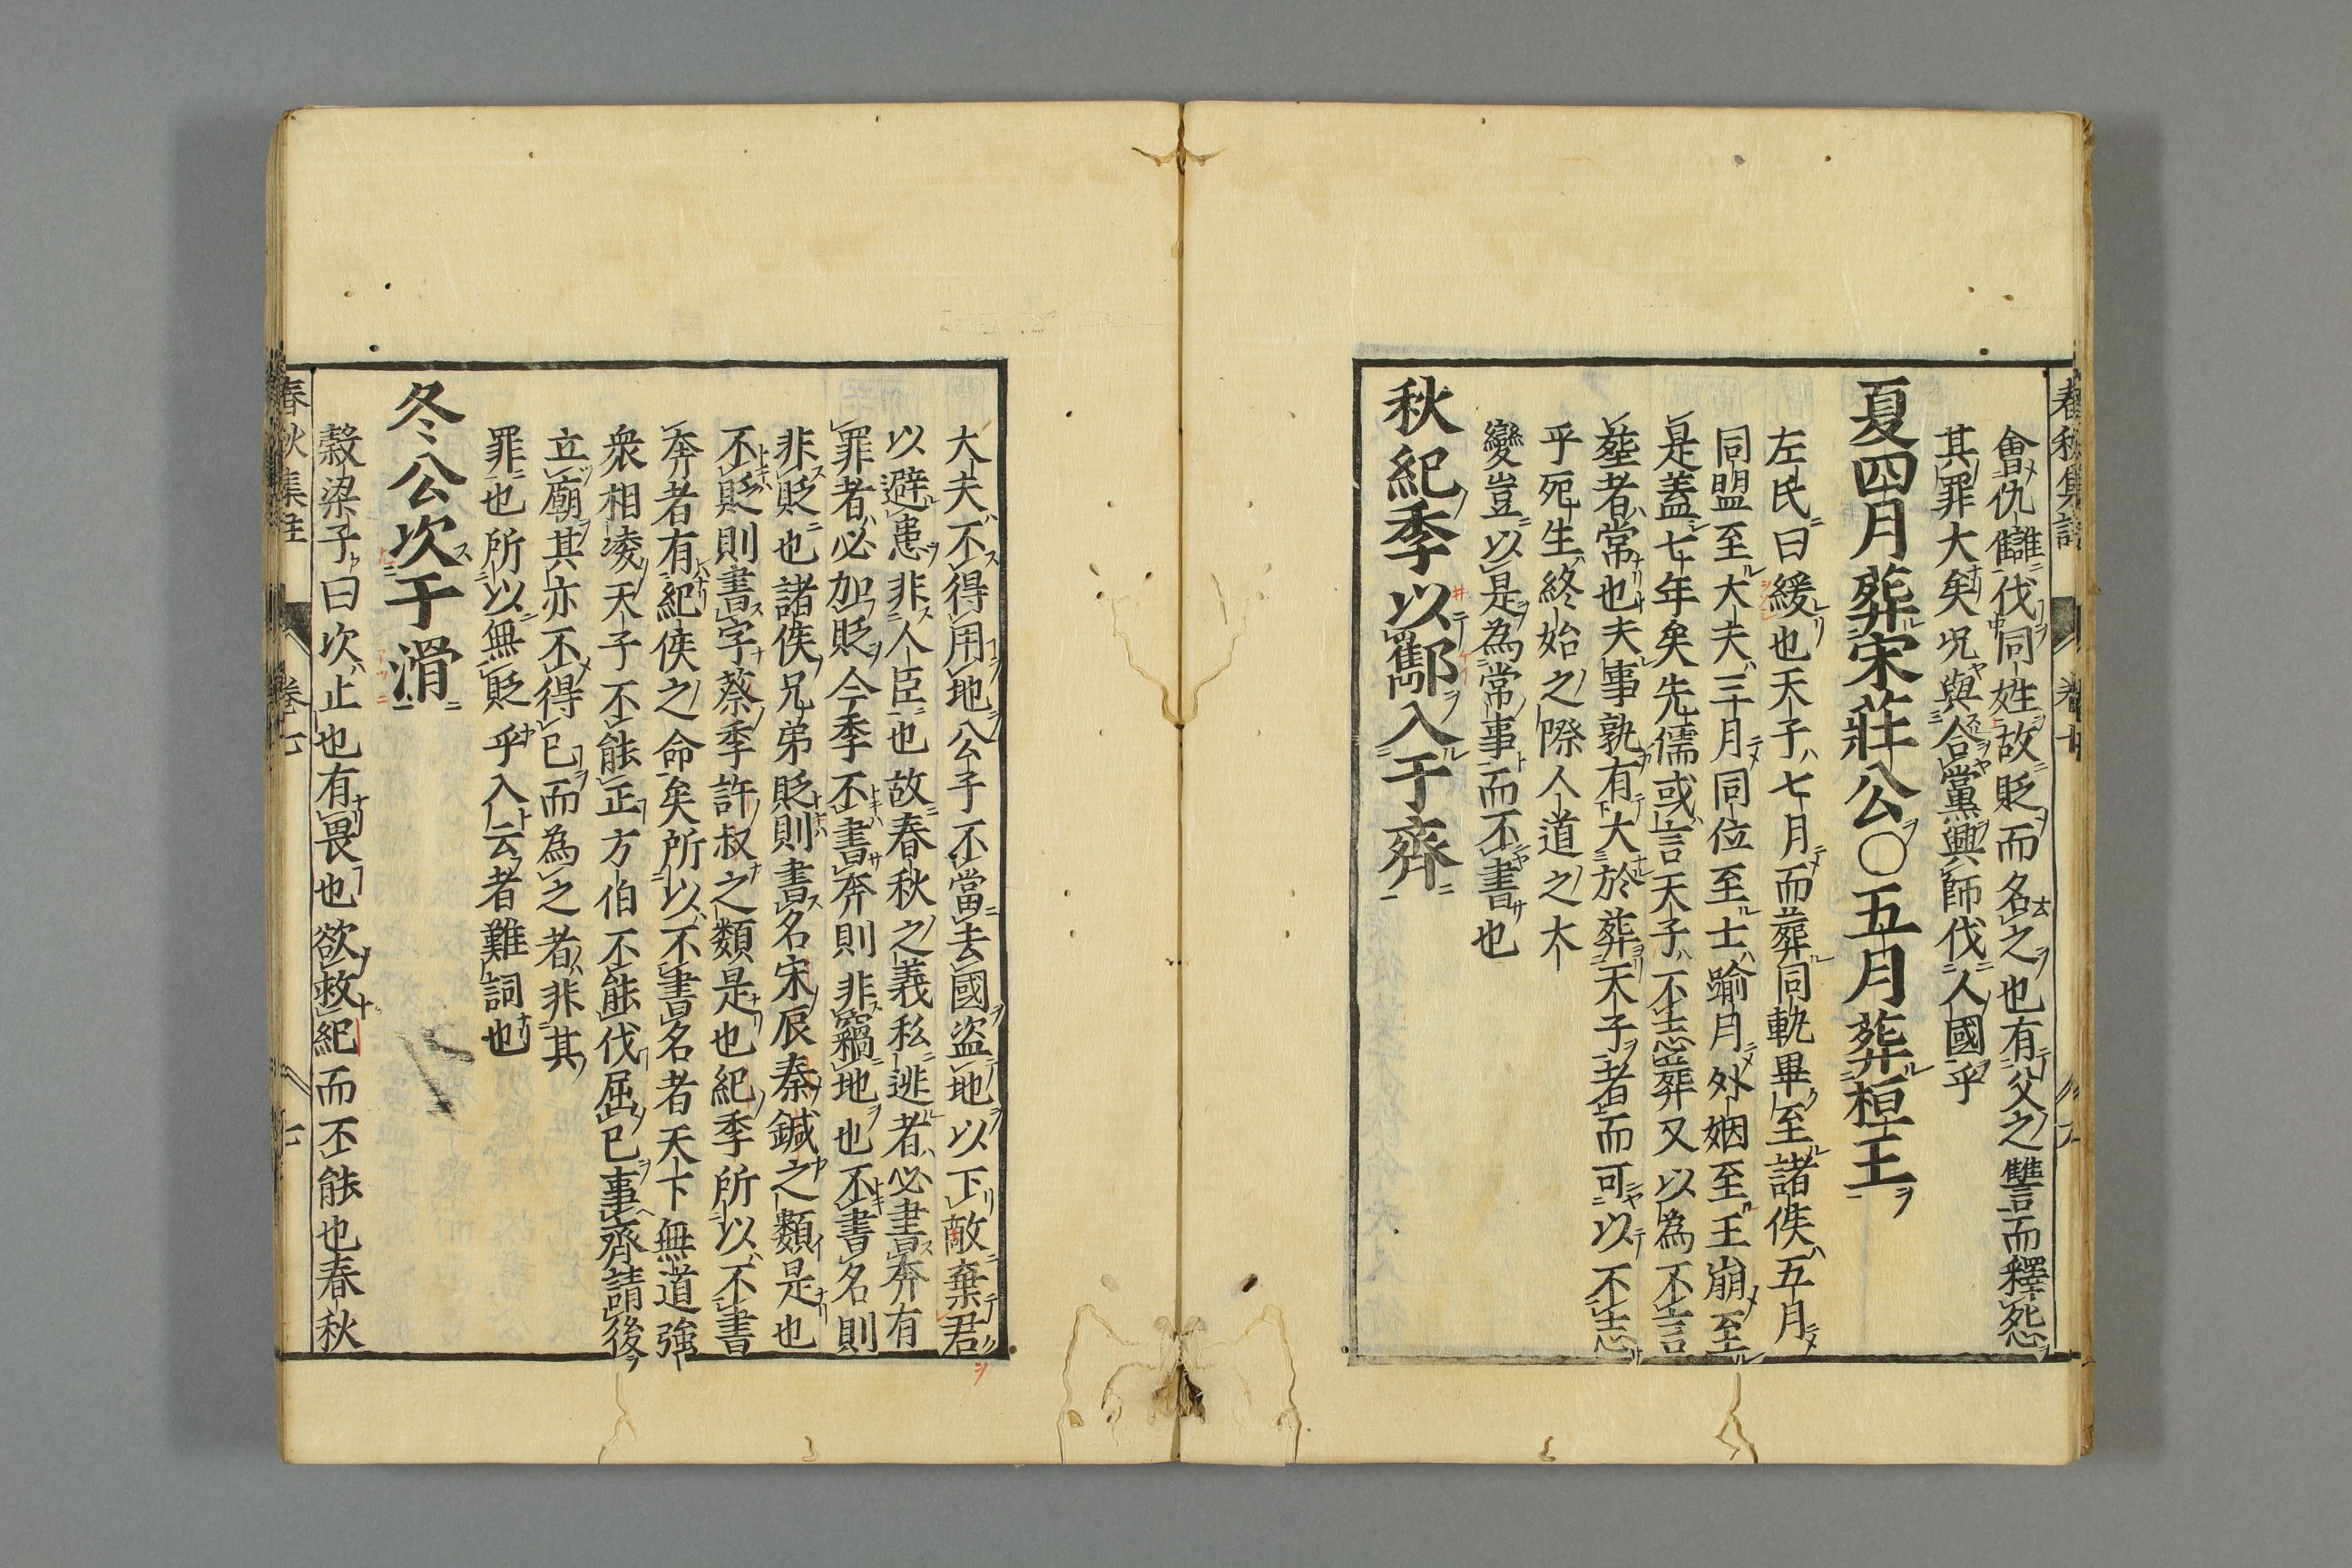 會仇讎伐同姓故貶而名之也有父之讐而釋怨
其罪大矣况與合黨興師伐人國乎
夏四月葬宋莊公〇五月葬桓王
左氏曰緩也天子七月而葬同軌畢至諸侯五月
同盟至大夫三月同位至士踰月外姻至王崩至
是蓋七年矣先儒或言天子不志葬又以為不言
塟者常也夫事孰有大於葬天子者而可以不志
乎死生終始之際人道之大
變豈以是為常事而不書也
秋紀季以酅入于齊
大夫不得用地公子不當去國盗地以下敵棄君
以避患非人臣也故春秋之義私逃者必書奔有
罪者必加貶今季不書奔則非竊地也不書名則
非貶也諸侯兄弟貶則書名宋辰秦鍼之類是也
不貶則書字蔡季許叔之類是也紀季所以不書
奔者有紀侯之命矣所以不書名者天下無道強
衆相凌天子不能正方伯不能伐屈已事齊請後
立廟其亦不得已而為之者非其
罪也所以無貶乎入云者難詞也
冬公次于滑
榖梁子曰次止也有畏也欲救紀而不能也春秋
春秋集註